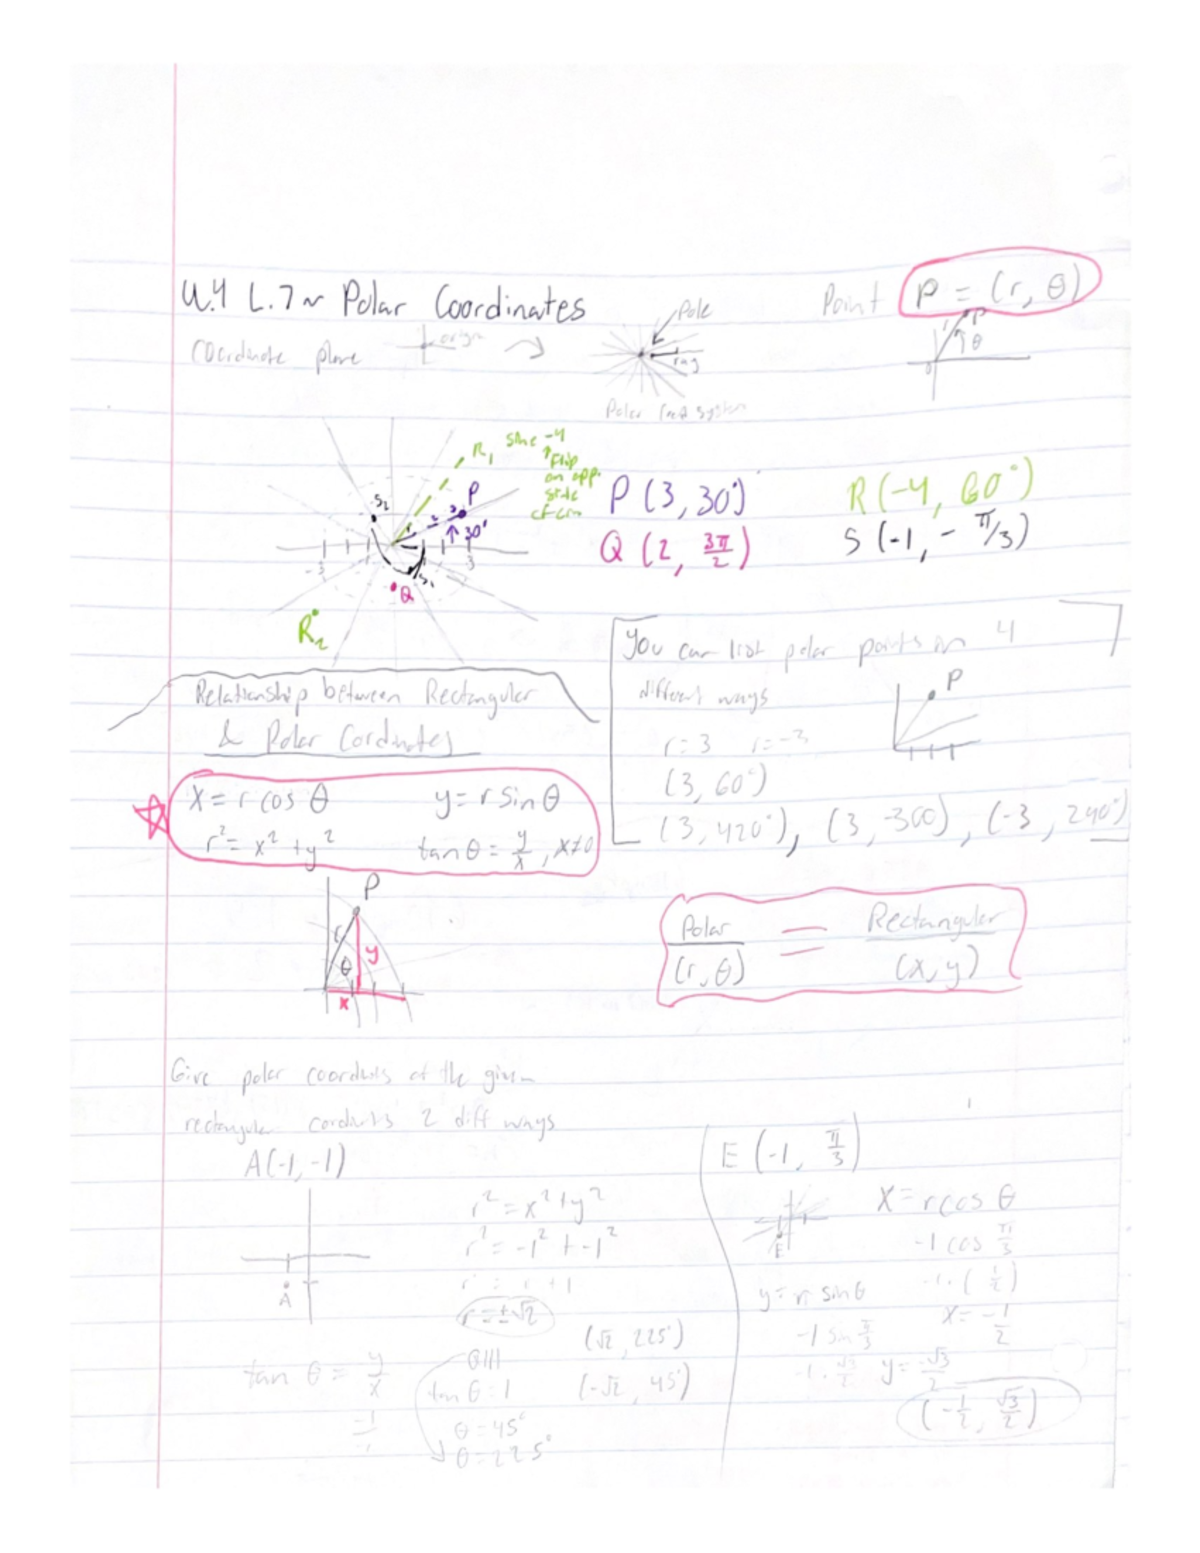 U.4 L.7~ Polar Coordinates
Point P = (r, θ)
Coordinate plane
origin
Pole
ray
P
θ
Polar Cord system
R₁ sinc -4
↑ Flip
on opp.
side
S₂
P
2 3
↑ 30°
-3 3
S₁
Q
R₂
P (3, 30°)
R (-4, 60°)
Q (2, 3π/2)
S (-1, - π/3)
You can list polar points in 4
different ways
P
r=3 r=-3
(3, 60°)
(3, 420°), (3, -300), (-3, 240°)
Relationship between Rectangular
& Polar Cordinates
x = r cos θ y = r sin θ
r² = x² + y² tan θ = y/x, x≠0
P
r
θ
y
x
Polar = Rectangular
(r, θ) (x, y)
Give polar coordnts of the given
rectangular cordnts 2 diff ways
A(-1, -1)
A
r² = x² + y²
r² = -1² + -1²
r = ±√2
tan θ = y/x
tan θ = 1
θ = 45°
θ = 225°
(√2, 225°)
(-√2, 45°)
E (-1, π/3)
E
x = r cos θ
-1 cos π/3
-1 · (1/2)
x = -1/2
y = r sin θ
-1 sin π/3
-1 · √3/2 y = -√3/2
(-1/2, √3/2)